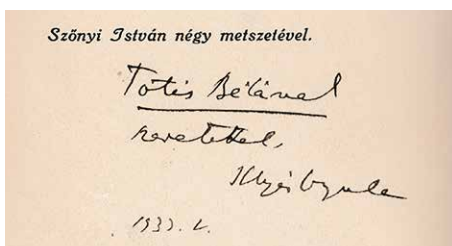 Szőnyi István négy metszetével.
Totis Bélának
szeretettel,
Illyés Gyula
1933. V.